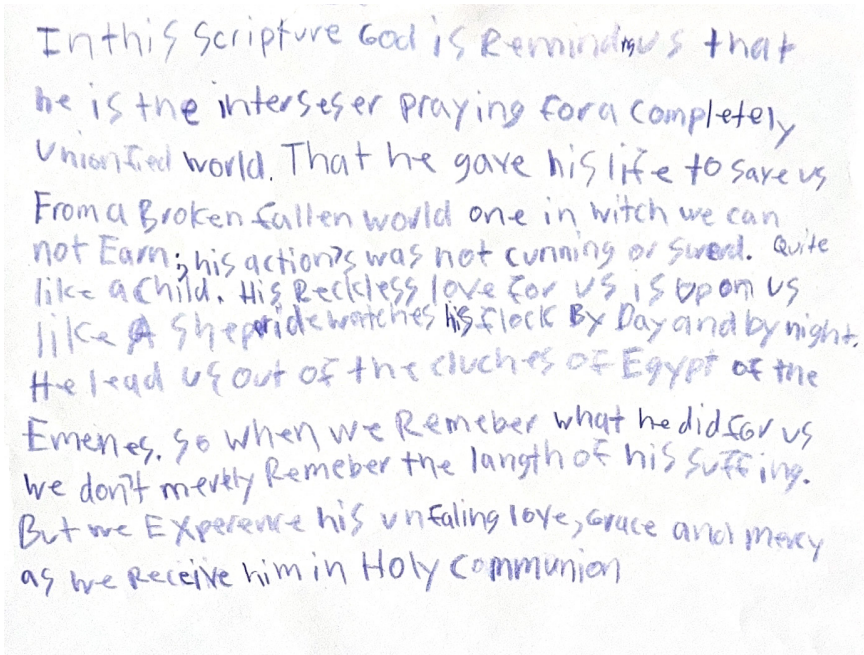 In this Scripture God is Reminding us that
he is the interseser praying for a completely
Unionfied world. That he gave his life to save us
From a Broken fallen world one in witch we can
not Earn; his action's was not cunning or Quite
like a child. His Reckless love for us is upon us
like A Sheperide watches his flock By Day and by night.
He lead us out of the cluches of Egypt of the
Emenes. So when we Remeber what he did for us
we don't merely Remeber the langth of his suffing.
But we Experence his unfaling love, Grace and mercy
as we Receive him in Holy Communion